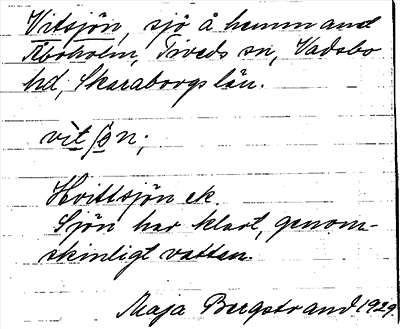 Vitsjön, sjö å hemmanet
Åboholm, Tiveds sn, Vadsbo
hd, Skaraborgs län.
vìt ʃön;
Hvittsjön ek.
Sjön har klart, genom-
skinligt vatten.
Maja Bergstrand 1929.